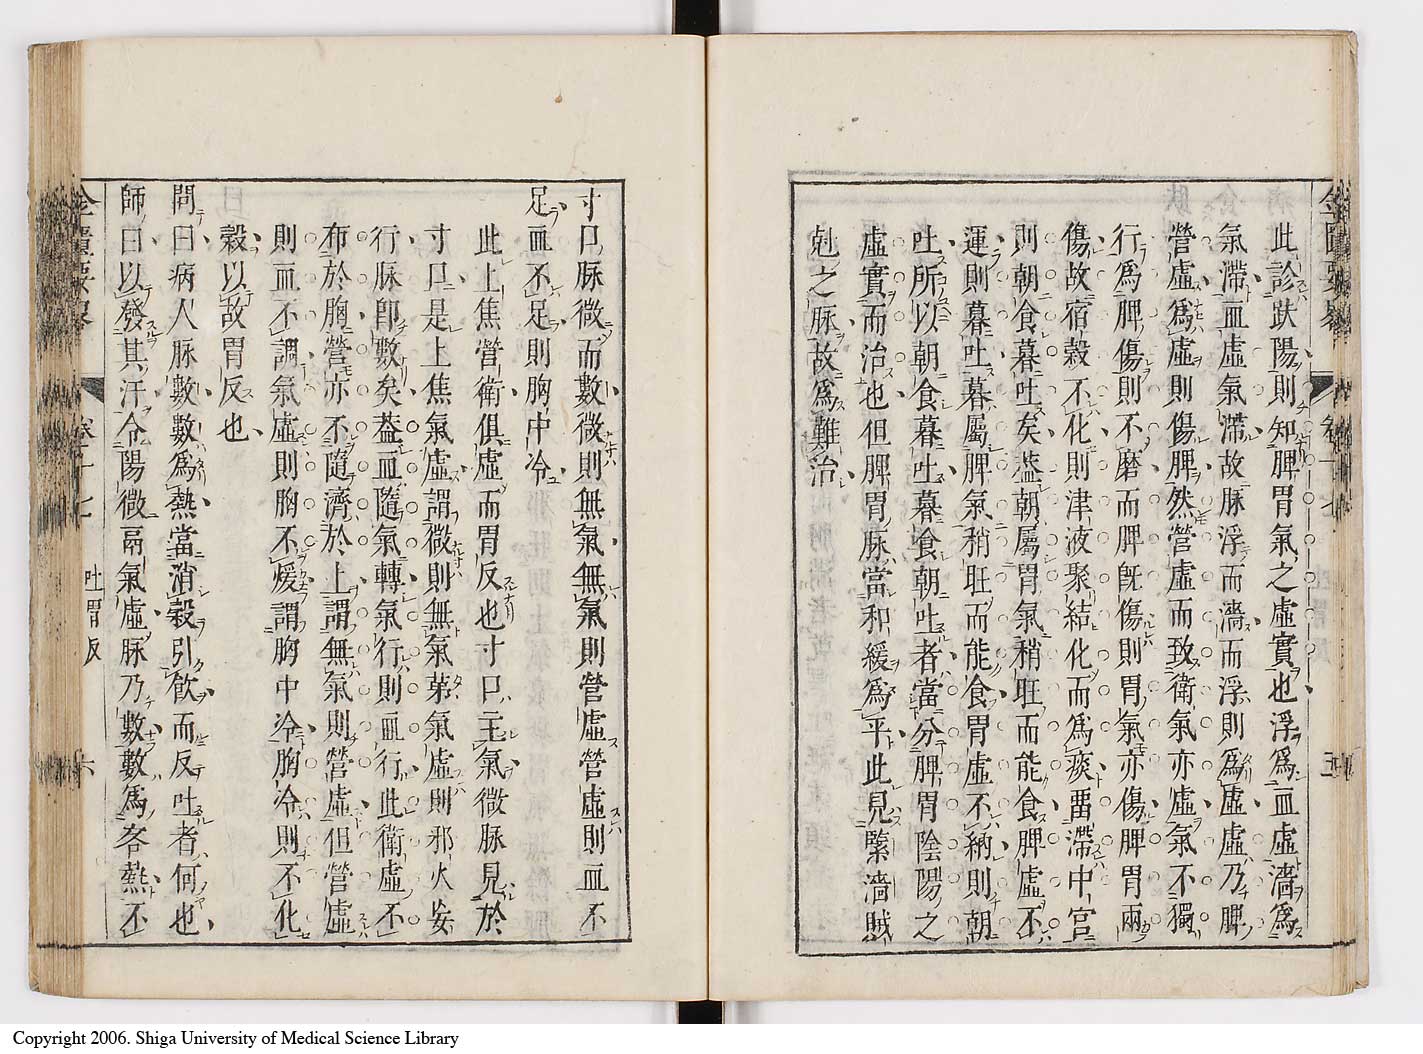 此診趺陽則知脾胃氣之虛實也浮爲血虛濇爲
氣滯血虛氣滯故脉浮而濇而浮則爲虛虛乃脾
營虛爲虛則傷脾然營虛而致衛氣亦虛氣不獨
行爲脾傷則不磨而脾旣傷則胃氣亦傷脾胃兩
傷故宿穀不化則津液聚結化而爲痰畱滯中宮
則朝食暮吐矣葢朝屬胃氣稍旺而能食脾虛不
運則暮吐暮屬脾氣稍旺而能食胃虛不納則朝
吐所以朝食暮吐暮食朝吐者當分脾胃陰陽之
虛實而治也但脾胃脉當和緩爲平此見緊濇賊
尅之脉故爲難治
金匱要畧 卷十七 五
寸口脉微而數微則無氣無氣則營虛營虛則血不
足血不足則胸中冷
此上焦營衛俱虛而胃反也寸口主氣微脉見於
寸口是上焦氣虛謂微則無氣苐氣虛則邪火妄
行脉卽數矣葢血隨氣轉氣行則血行此衛虛不
布於胸營亦不隨濟於上謂無氣則營虛但營虛
則血不調氣虛則胸不煖謂胸中冷胸冷則不化
穀以故胃反也
問曰病人脉數數爲熱當消穀引飮而反吐者何也
師曰以發其汗令陽微鬲氣虛脉乃數數爲客熱不
金匱要畧 卷十七 吐胃反 六
Copyright 2006. Shiga University of Medical Science Library